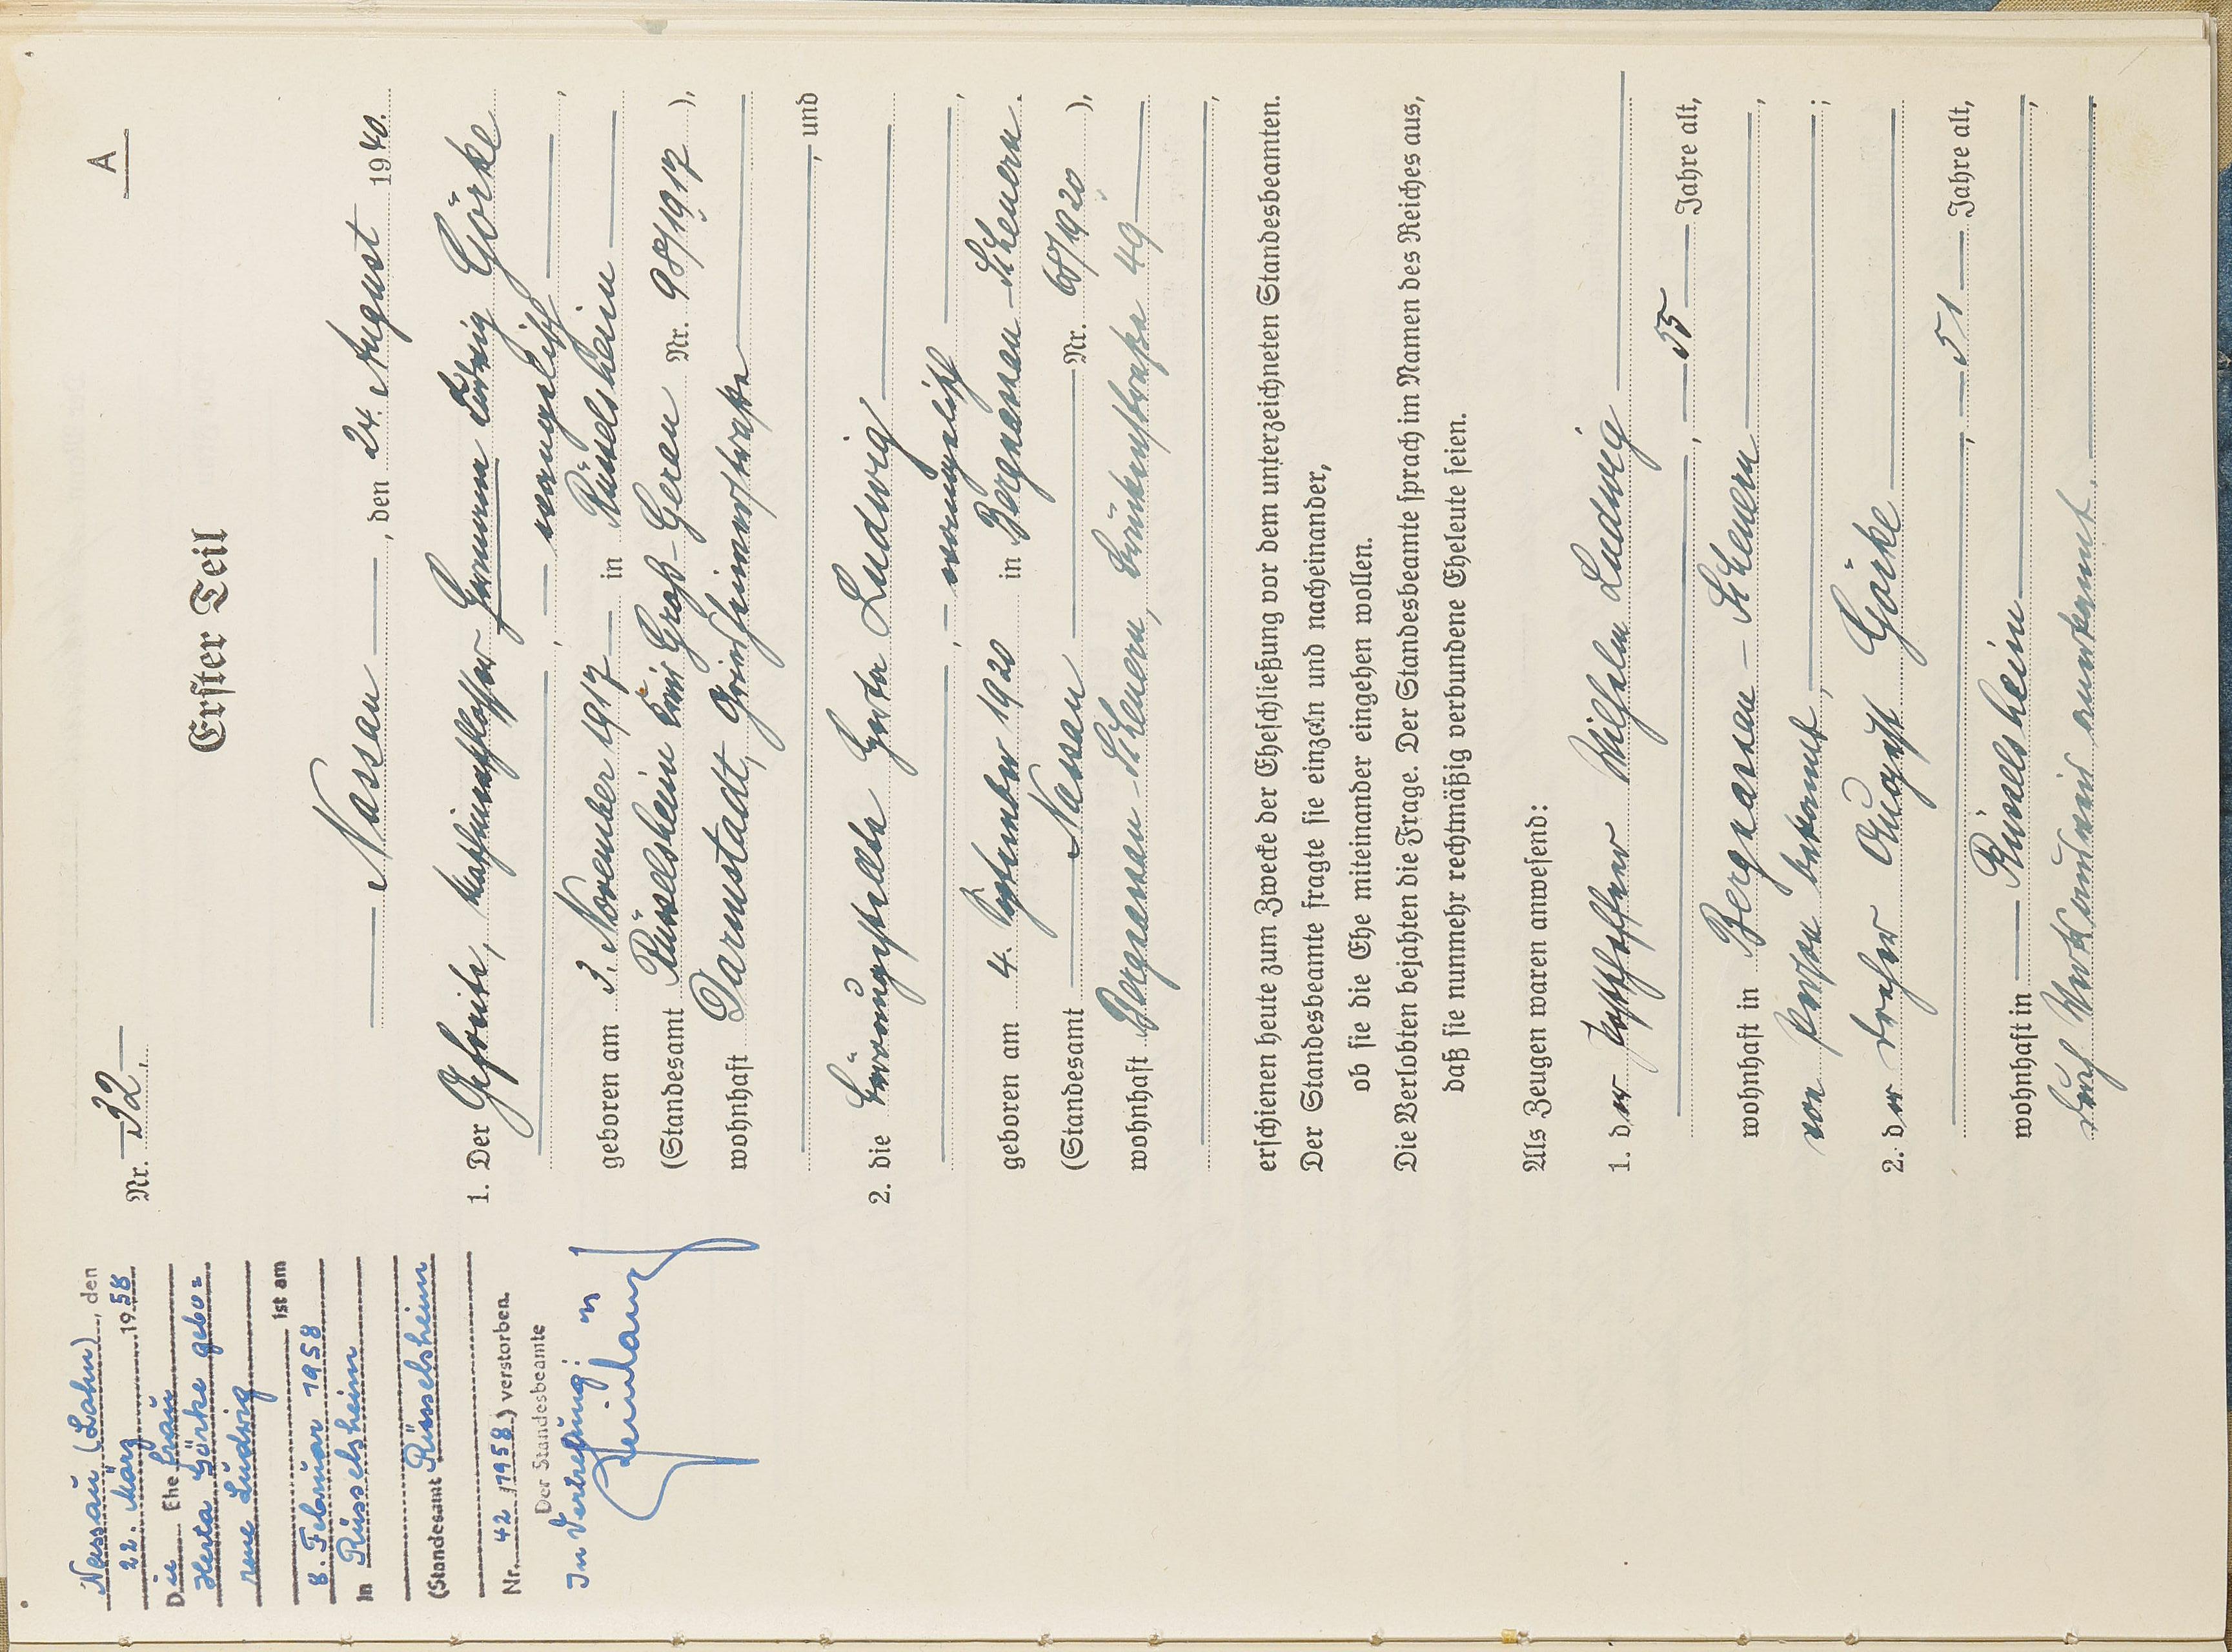 A
Nr. 32.
Erster Teil
Nassau, den 24. August 1940.
1. Der Gefreite, Maschinenschlosser Hermann Ludwig Görke
, — evangelisch,
geboren am 3. November 1917 in Rüsselsheim
(Standesamt Rüsselsheim Kreis Groß-Gerau Nr. 98/1917),
wohnhaft Darmstadt, Griesheimerstraße
, und
2. die Büroangestellte Herta Ludwig
, — evangelisch,
geboren am 4. September 1920 in Bergnassau-Scheuern.
(Standesamt Nassau Nr. 68/1920),
wohnhaft Bergnassau-Scheuern, Brückenstraße 49
,
erschienen heute zum Zwecke der Eheschließung vor dem unterzeichneten Standesbeamten.
Der Standesbeamte fragte sie einzeln und nacheinander,
ob sie die Ehe miteinander eingehen wollen.
Die Verlobten bejahten die Frage. Der Standesbeamte sprach im Namen des Reiches aus,
daß sie nunmehr rechtmäßig verbundene Eheleute seien.
Als Zeugen waren anwesend:
1. der Postschaffner Wilhelm Ludwig
, 55 Jahre alt,
wohnhaft in Bergnassau-Scheuern,
von Person bekannt, ;
2. der Dreher August Görke
, 51 Jahre alt,
wohnhaft in Rüsselsheim,
durch anerkannt.
Nassau (Lahn), den
22. März 1958
Die Ehefrau
Herta Görke gebo=
rene Ludwig
ist am
8. Februar 1958
in Rüsselsheim
(Standesamt Rüsselsheim
Nr. 42/1958) verstorben.
Der Standesbeamte
In Vertretung: